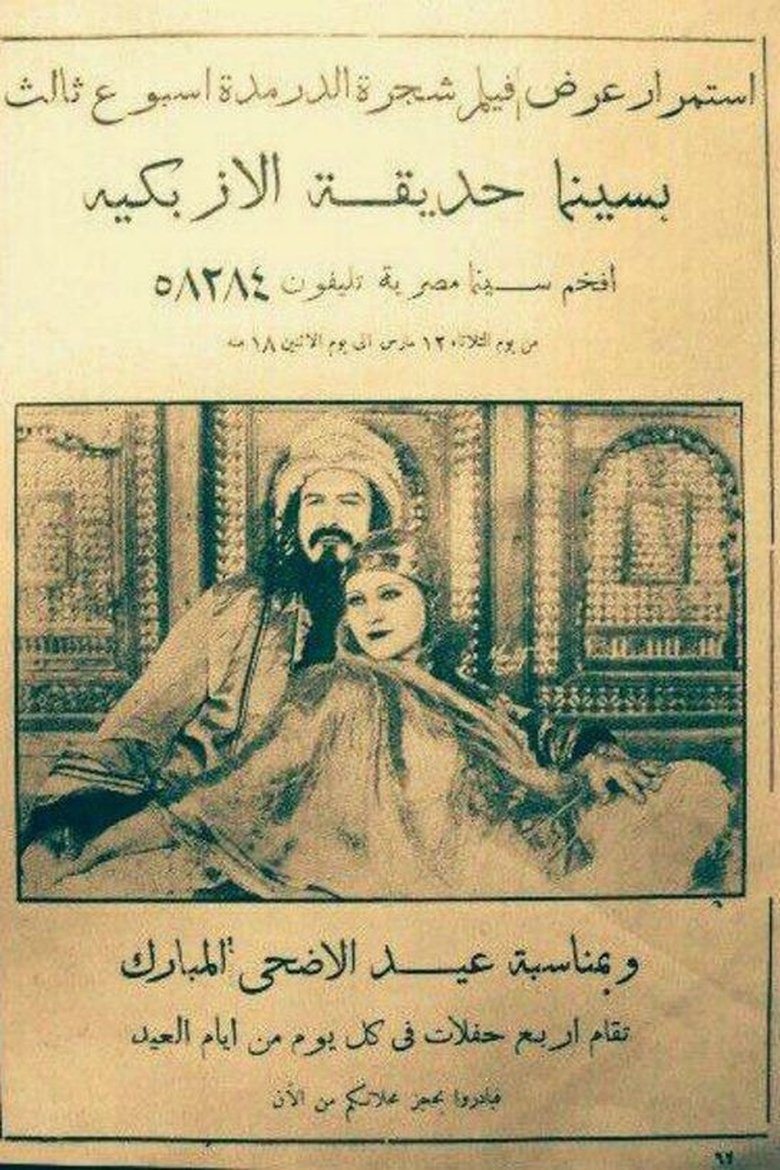 استمرار عرض فيلم شجرة الدر مدة اسبوع ثالث
بسينما حديقة الازبكيه
افخم سينما مصرية تليفون ٥٨٢٨٤
من يوم الثلاثاء ١٢ مارس الى يوم الاثنين ١٨ منه
وبمناسبة عيد الاضحى المبارك
تقام اربع حفلات فى كل يوم من ايام العيد
فبادروا بحجز محلاتكم من الآن